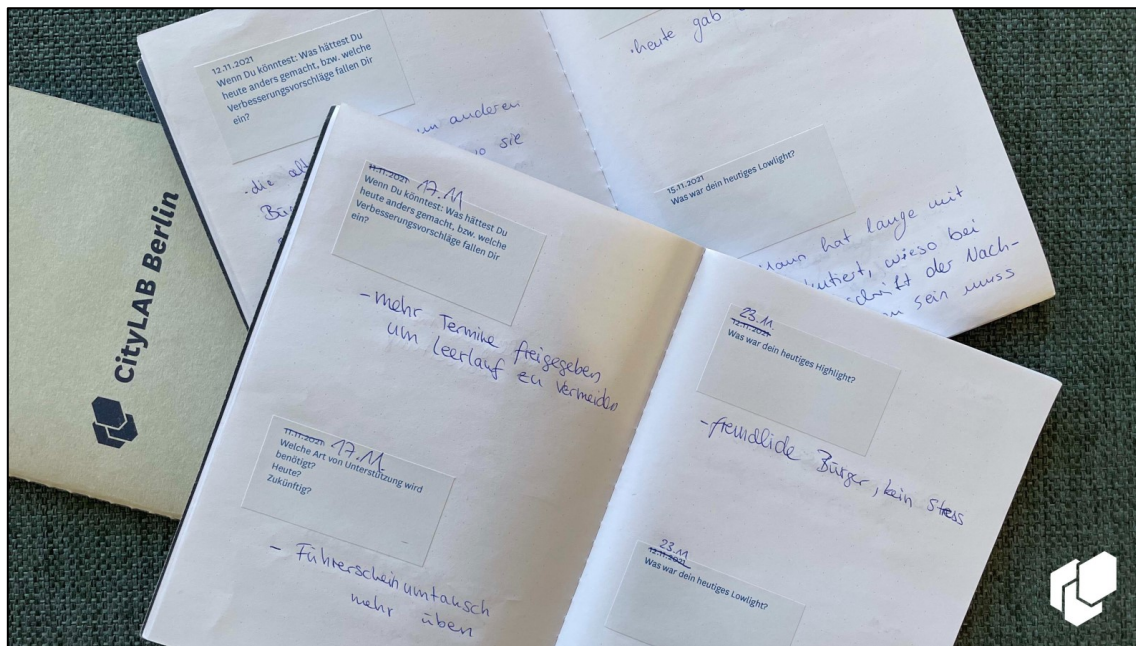 CityLAB Berlin
12.11.2021
Wenn Du könntest: Was hättest Du
heute anders gemacht, bzw. welche
Verbesserungsvorschläge fallen Dir
ein?
anderen
sie
heute gab
15.11.2021
Was war dein heutiges Lowlight?
hat lange mit
wieso bei
der Nach-
sein muss
11.11.2021 17.11
Wenn Du könntest: Was hättest Du
heute anders gemacht, bzw. welche
Verbesserungsvorschläge fallen Dir
ein?
-mehr Termine freigegeben
um leerlauf zu vermeiden
11.11.2021 17.11.
Welche Art von Unterstützung wird
benötigt?
Heute?
Zukünftig?
- Führerscheinumtausch
mehr üben
23.11.
12.11.2021
Was war dein heutiges Highlight?
-freundliche Bürger, kein Stress
23.11
12.11.2021
Was war dein heutiges Lowlight?